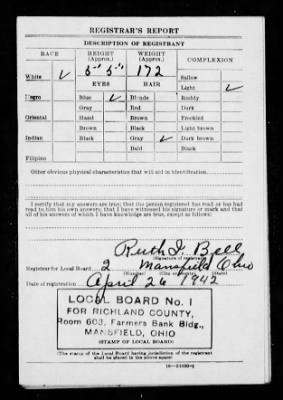 REGISTRAR'S REPORT
DESCRIPTION OF REGISTRANT
RACE HEIGHT (Approx.) WEIGHT (Approx.) COMPLEXION
White ✓ 5" 5" 172 Sallow
EYES HAIR Light ✓
Negro Blue ✓ Blonde Ruddy
Gray Red Dark
Oriental Hazel Brown Freckled
Brown Black Light brown
Indian Black Gray ✓ Dark brown
Bald Black
Filipino
Other obvious physical characteristics that will aid in identification
I certify that my answers are true; that the person registered has read or has had
read to him his own answers; that I have witnessed his signature or mark and that
all of his answers of which I have knowledge are true, except as follows:
Ruth I. Bell
(Signature of registrar)
Registrar for Local Board 2 Mansfield Ohio
(Number) (City or county) (State)
Date of registration April 26 1942
LOCAL BOARD No. 1
FOR RICHLAND COUNTY,
Room 603, Farmers Bank Bldg.,
MANSFIELD, OHIO
(STAMP OF LOCAL BOARD)
(The stamp of the Local Board having jurisdiction of the registrant
shall be placed in the above space.)